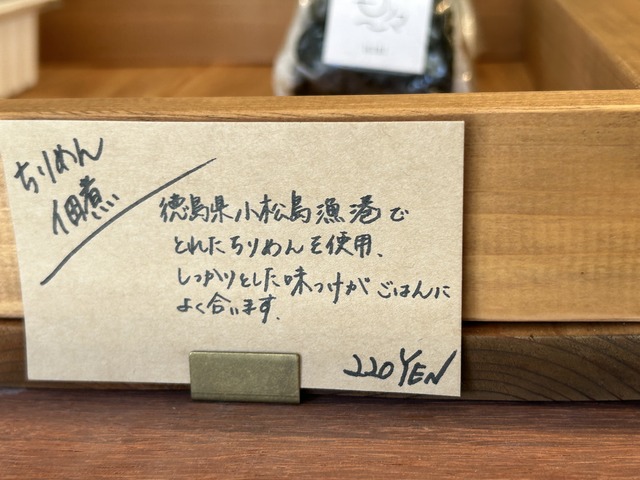 ちりめん
佃煮
徳島県小松島漁港で
とれたちりめんを使用、
しっかりとした味つけがごはんに
よく合います.
220YEN